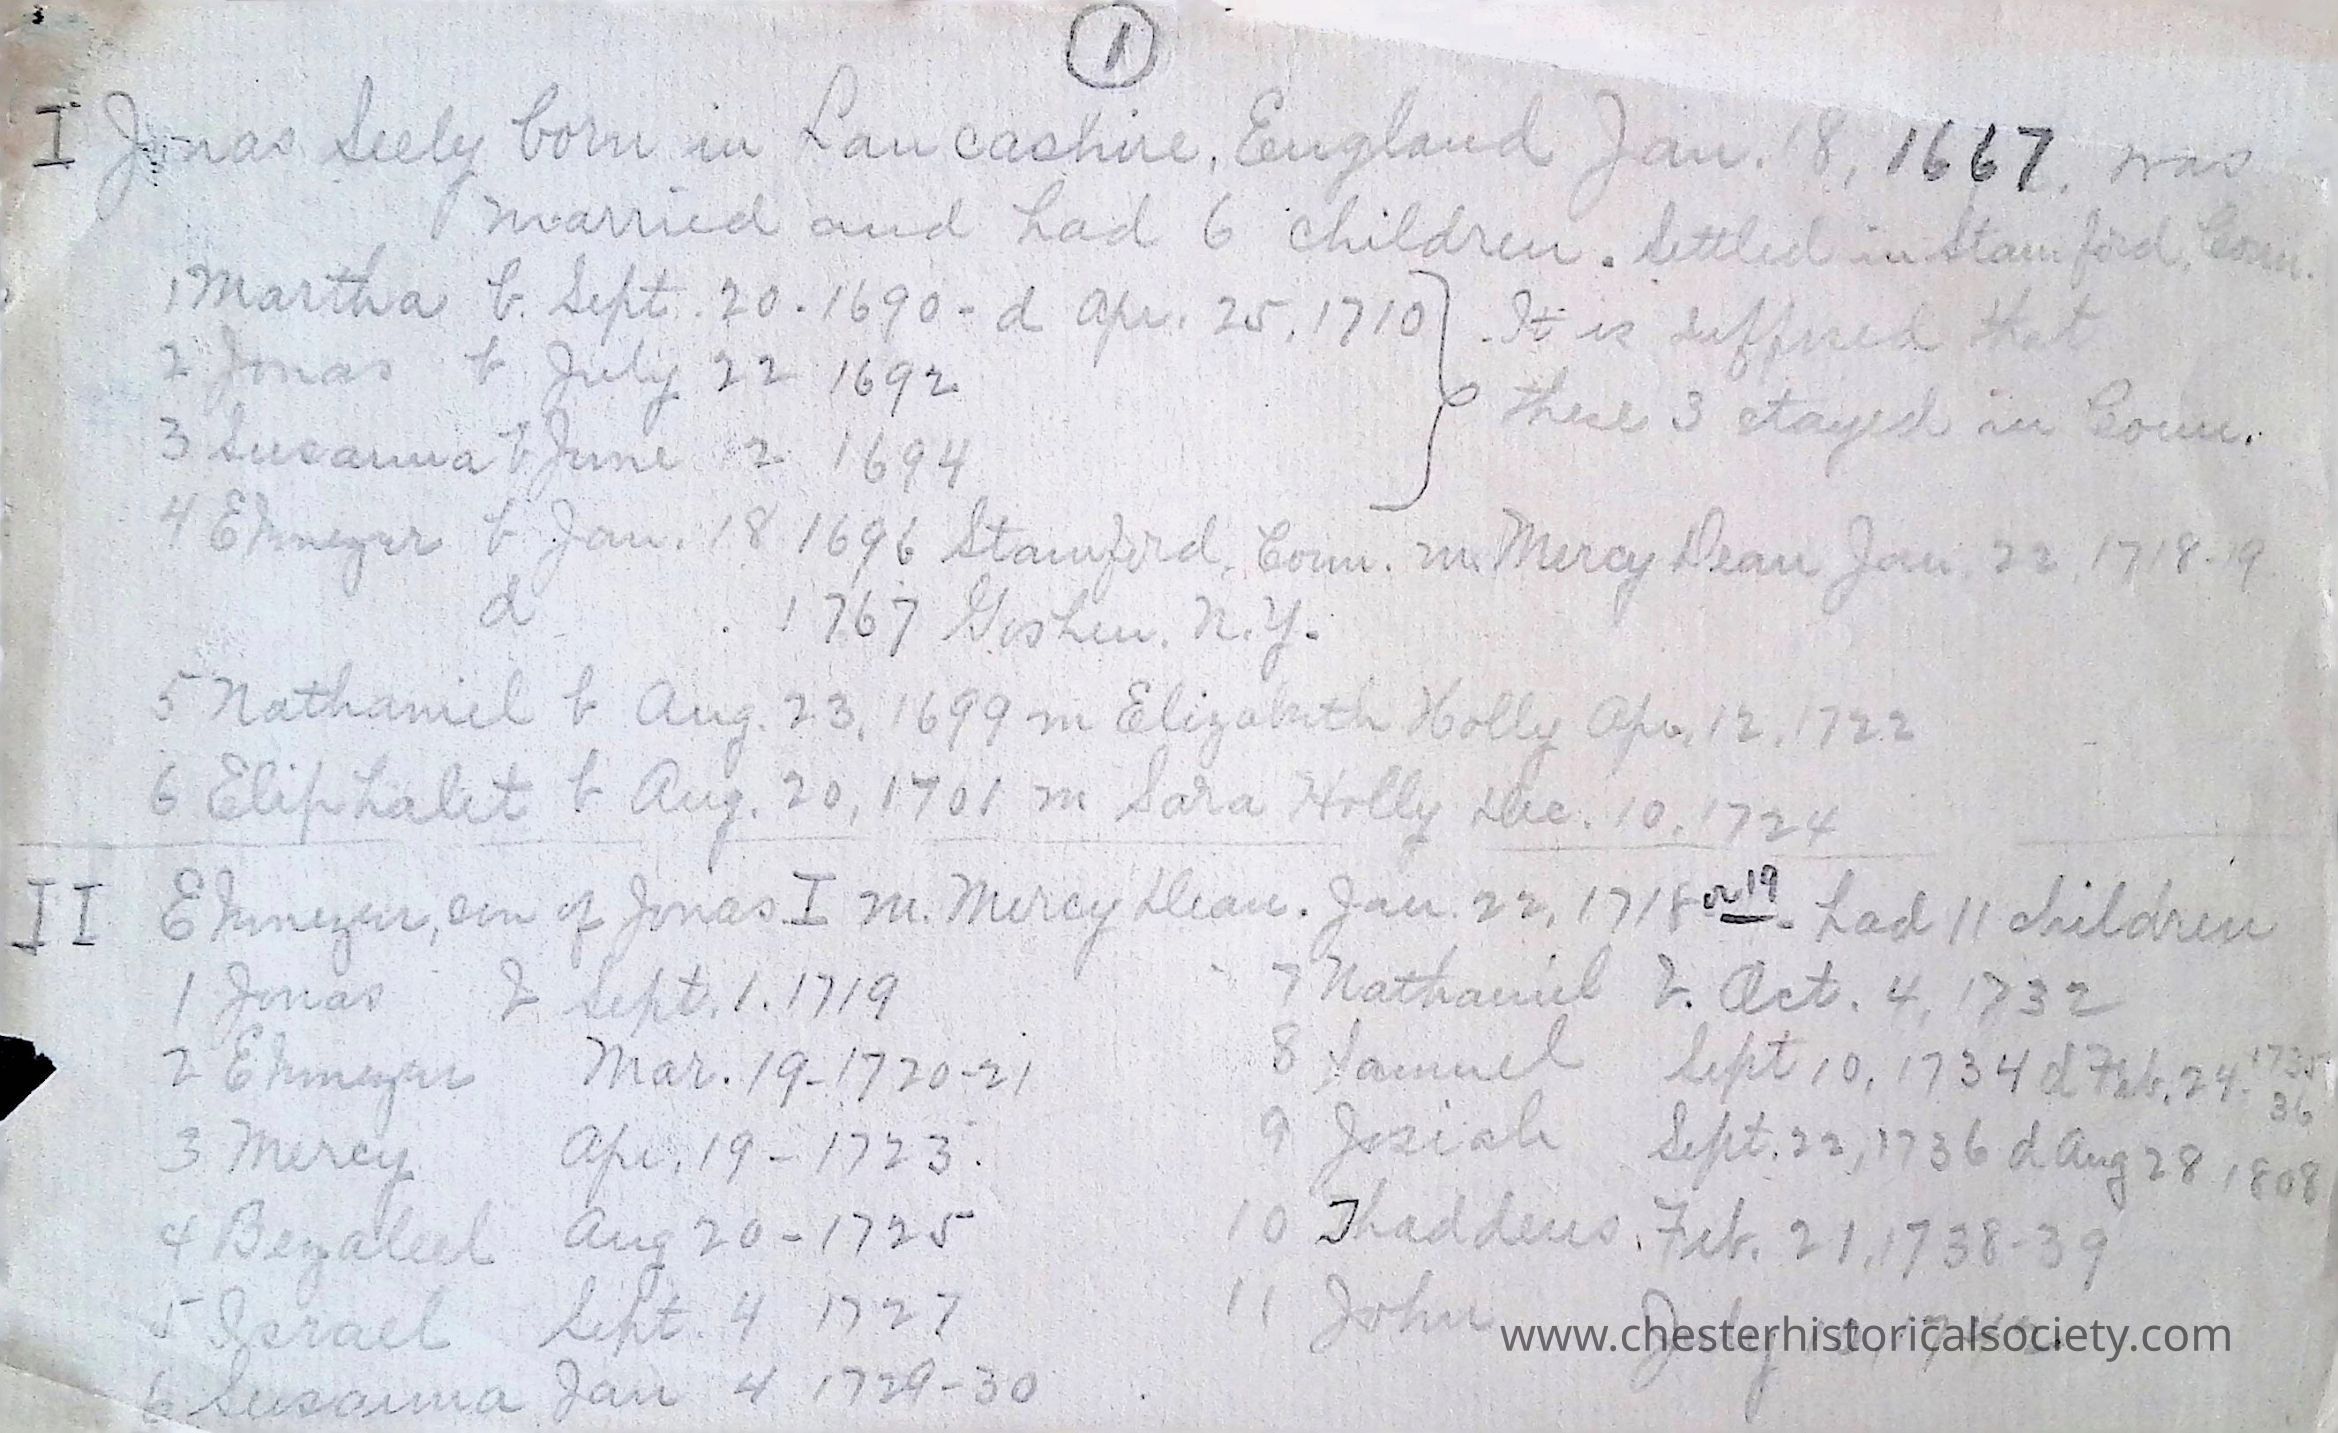 1
I Jonas Seely born in Lancashire, England Jan. 18, 1667, was
married and had 6 children. Settled in Stamford, Conn.
1 Martha b. Sept. 20. 1690 - d Apr. 25, 1710
2 Jonas b July 22 1692
3 Susanna b June 12 1694
It is supposed that
these 3 stayed in Conn.
4 Ebenezer b Jan. 18 1696 Stamford, Conn. m. Mercy Dean Jan. 22, 1718-19
d . 1767 Goshen, N.Y.
5 Nathaniel b Aug. 23, 1699 m Elizabeth Holly Apr. 12, 1722
6 Eliphalet b Aug. 20, 1701 m Sara Holly Dec. 10, 1724
II Ebenezer, son of Jonas I m. Mercy Dean. Jan. 22, 1718 or 19. had 11 children
1 Jonas b Sept. 1. 1719
2 Ebenezer Mar. 19-1720-21
3 Mercy Apr. 19 - 1723.
4 Bezaleel Aug 20 - 1725
5 Israel Sept. 4 1727
6 Susanna Jan 4 1729-30
7 Nathaniel b. Oct. 4, 1732
8 Samuel Sept 10, 1734 d Feb. 24. 1735
36
9 Josiah Sept. 22, 1736 d Aug 28, 1808
10 Thaddeus. Feb. 21, 1738-39
11 John July
www.chesterhistoricalsociety.com